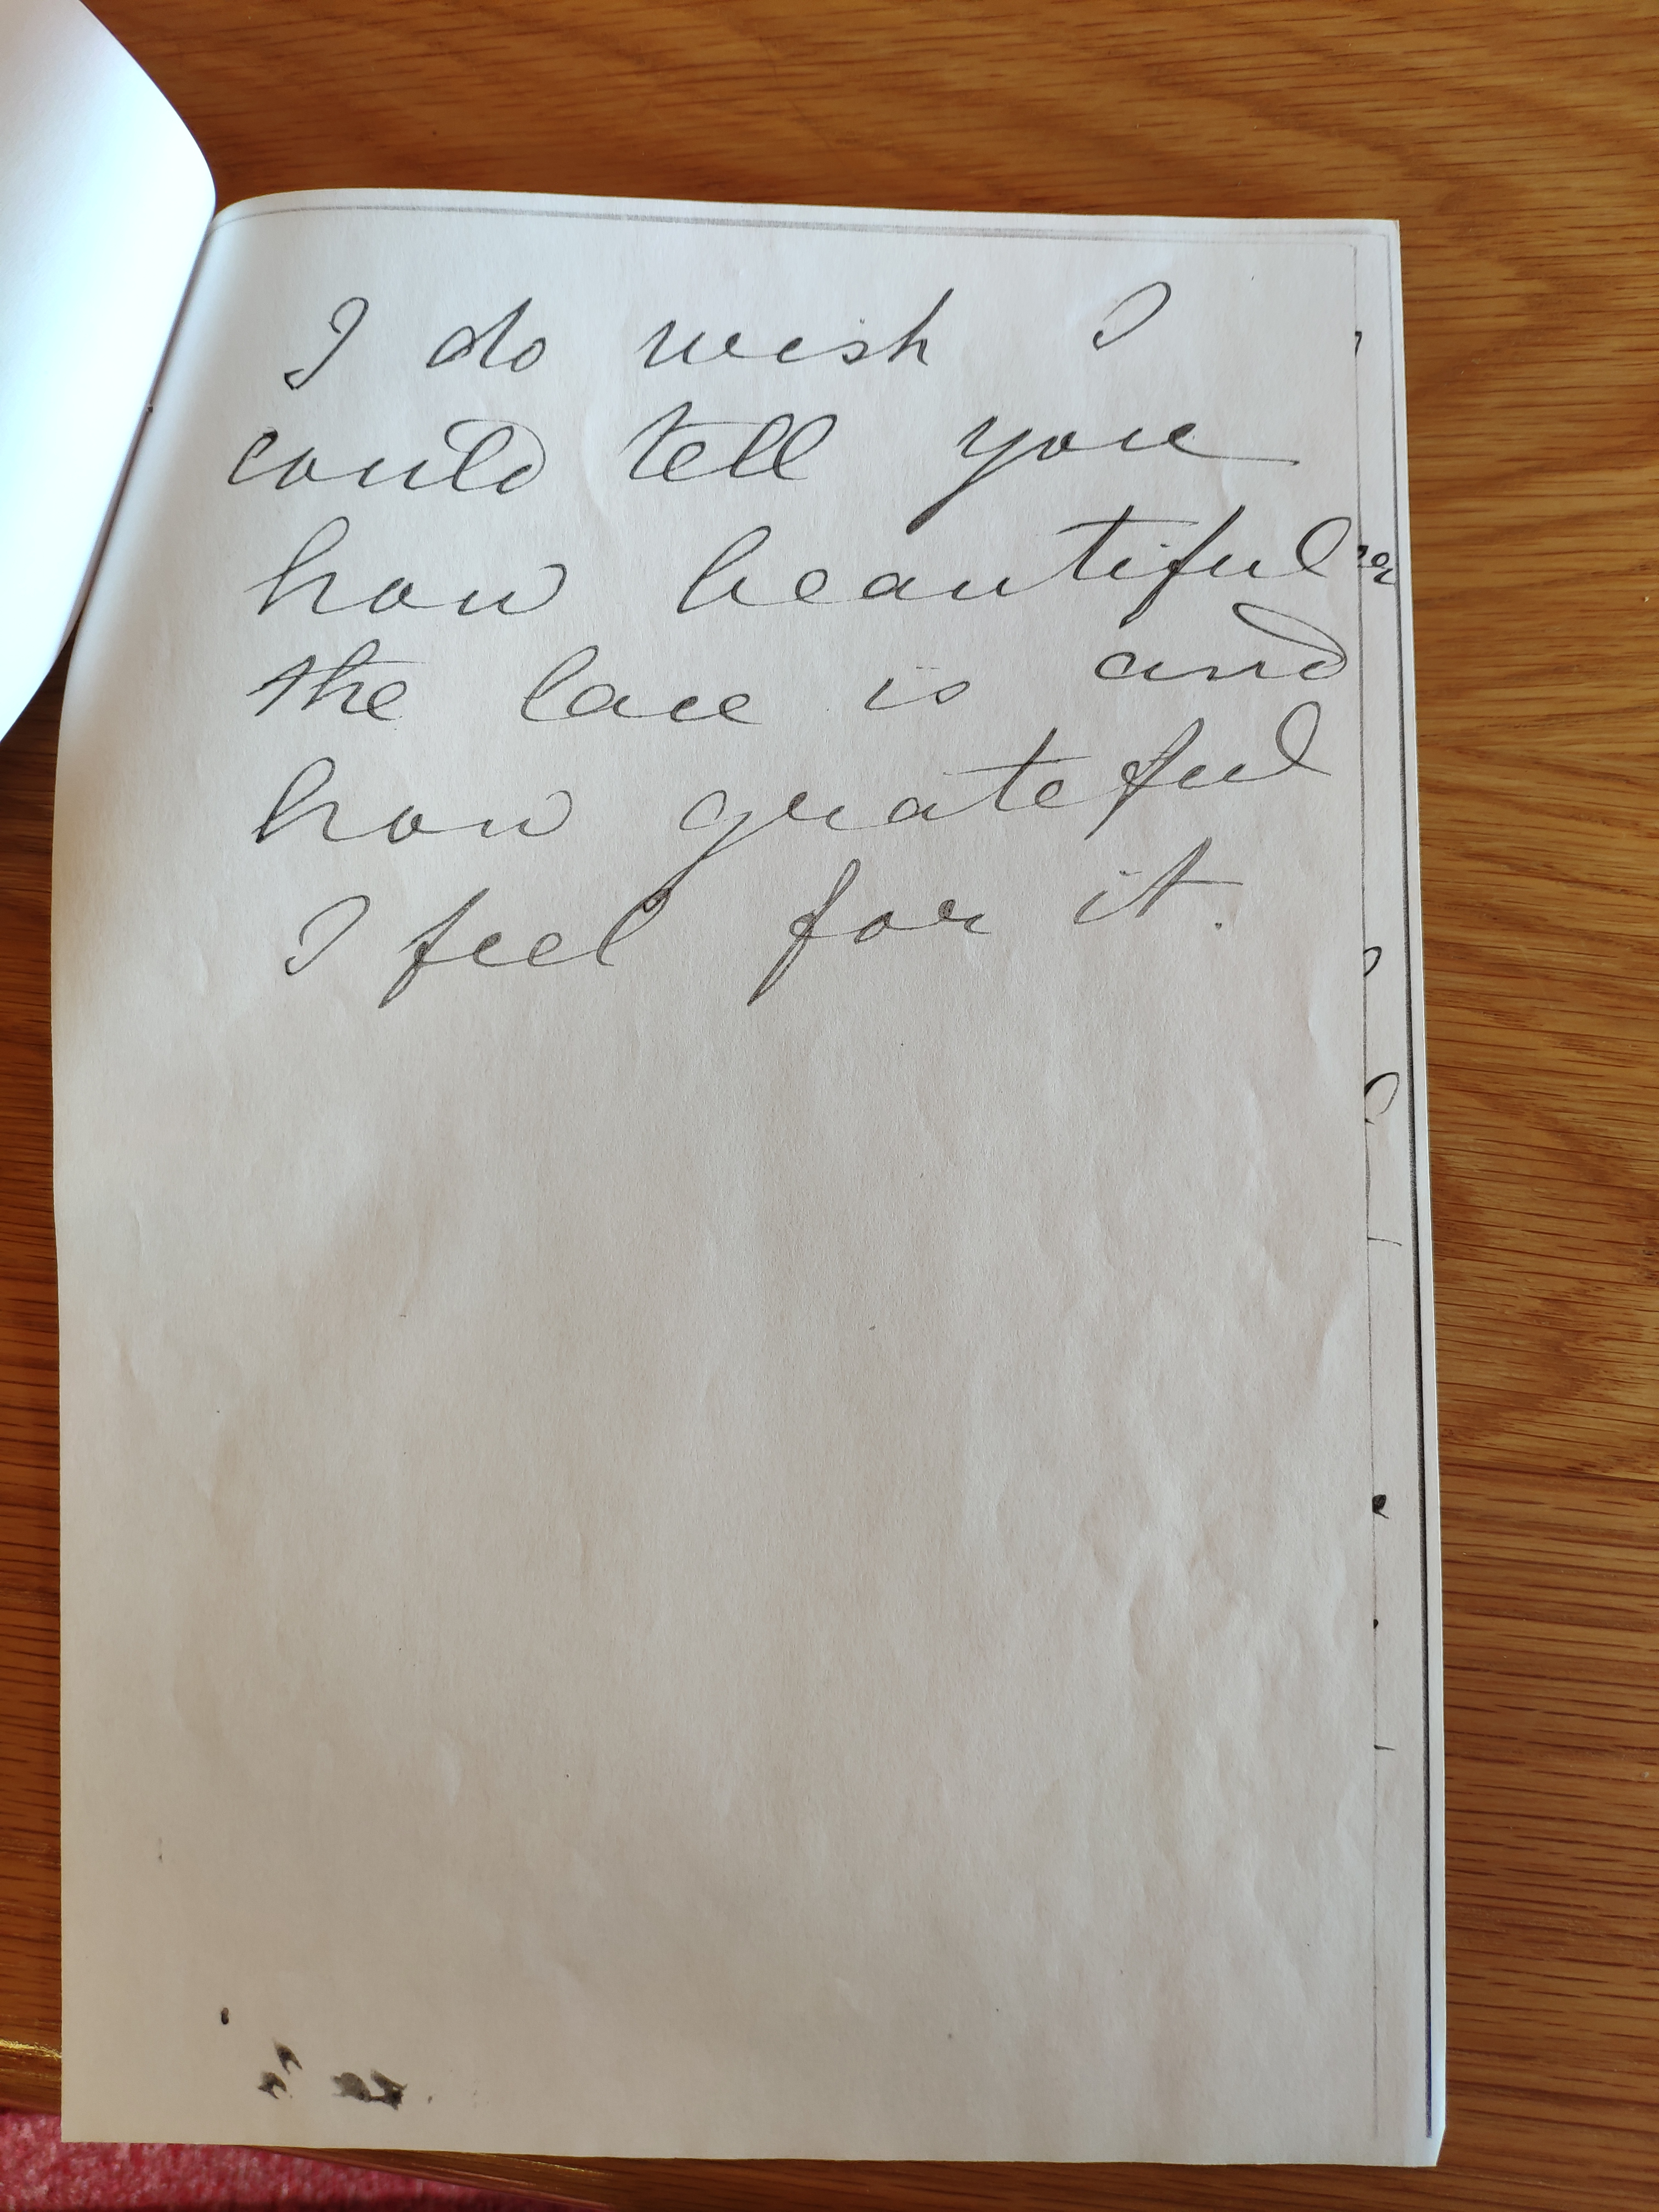 I do wish I
could tell you
how beautiful
the lace is and
how grateful
I feel for it.